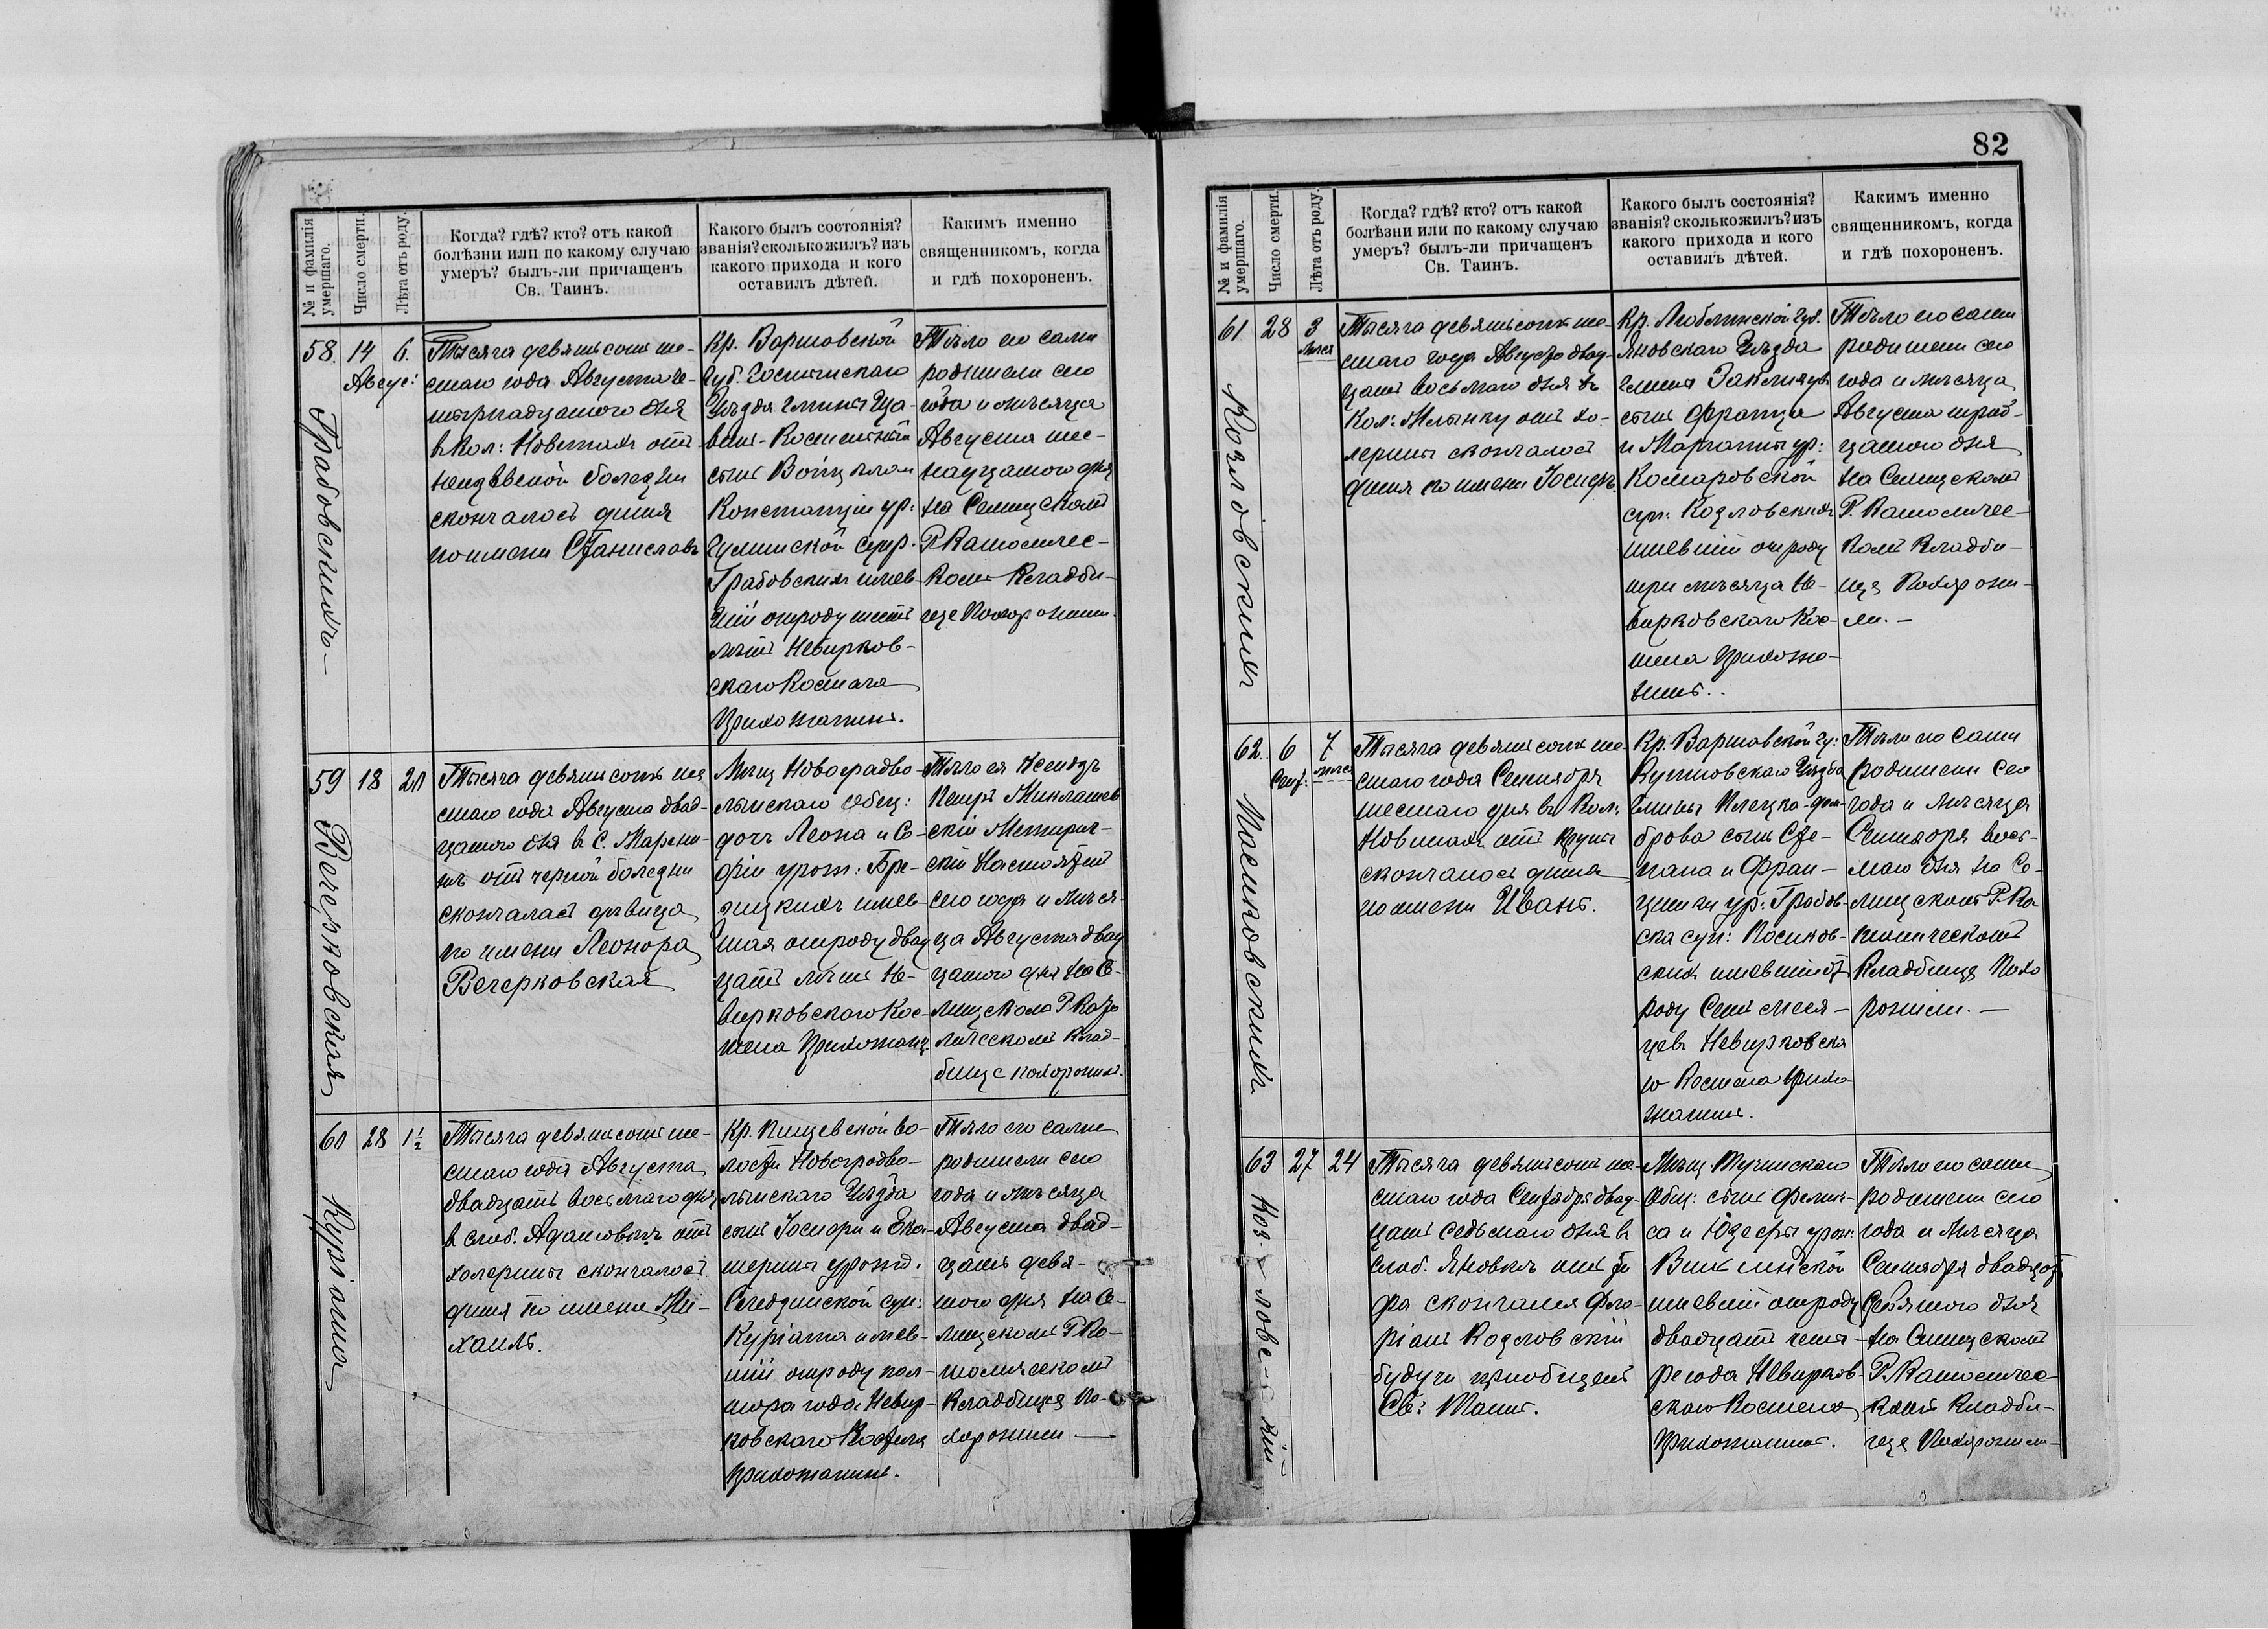 № и фамилія
умершаго.
Число смерти.
Лѣта отъ роду.
Когда? гдѣ? кто? отъ какой
болѣзни или по какому случаю
умеръ? былъ-ли причащенъ
Св. Таинъ.
Какого былъ состоянія?
званія? сколько жилъ? изъ
какого прихода и кого
оставилъ дѣтей.
Какимъ именно
священникомъ, когда
и гдѣ похороненъ.
58.
Авгус:
Грабовскихъ
14
6.
Тысяча девятьсотъ ше-
стаго года Августа че-
тырнадцатого дня
въ Кол: Новинахъ отъ
болезни
скончалось дитя
по имени Станиславъ
Кр. Варшовской
Губ. Гостынскаго
Уѣзда Гмины
сынъ
Констанціи ур:
супр.
Грабовскихъ имѣв-
шій отроду шесть
лѣтъ Невирков-
скаго Костела
Прихожанинъ.
Тѣло его сами
родители сего
года и мѣсяца
Августа шес-
надцатого дня
на Селищскомъ
Р Католичес-
комъ Кладби-
ще Похоронили.
59
Вечерковская
18
20
Тысяча девятьсотъ ше
стаго года Августа двад-
цатого дня в С. Марени-
нѣ отъ черной болезни
скончалась девица
по имени Леонора
Вечерковская
Мѣщ Новоградво-
лынскаго Общ:
дочь Леона и Со-
фіи урож:
имев-
шая отроду двад
цать лѣтъ Не-
вирковскаго Кос-
тела Прихожан.
Тѣло ея Ксендзъ
Петръ Миклашев
скій Межирич-
скій Настоятель
сего года и мѣся-
ца Августа двад
цатого дня на Се-
лищскомъ Р Като
лическомъ Клад-
бище похоронилъ.
60
Куріата
28
1½
Тысяча девятьсотъ ше-
стаго года Августа
двадцать восьмаго дня
в слоб. Адамовкѣ отъ
холерины скончалось
дитя по имени Ми-
хаилъ.
Кр. Пищевской во-
лости Новоградво-
лынскаго Уѣзда
сынъ Іосифа и Ека-
терины урожд.
суп:
Куріата имев-
шій отроду пол-
тора года Невир-
ковскаго Костела
прихожанинъ.
Тѣло его сами
родители сего
года и мѣсяца
Августа двад-
цать девя-
того дня на Се-
лищскомъ Р Ка-
толическомъ
Кладбище По-
хоронили —
82
№ и фамилія
умершаго.
Число смерти.
Лѣта отъ роду.
Когда? гдѣ? кто? отъ какой
болѣзни или по какому случаю
умеръ? былъ-ли причащенъ
Св. Таинъ.
Какого былъ состоянія?
званія? сколько жилъ? изъ
какого прихода и кого
оставилъ дѣтей.
Какимъ именно
священникомъ, когда
и гдѣ похороненъ.
61
Козловскихъ
28
3
мѣся
Тысяча девятьсотъ ше-
стаго года Августа двад-
цать восьмаго дня въ
Кол: отъ хо-
лерины скончалось
дитя по имени Іосифъ.
Кр. Люблинской Губ.
Яновскаго Уѣзда
Гмины
сынъ Франца
и Маріанны ур:
Комаровской
суп: Козловскихъ
имевшій отроду
три мѣсяца Не-
вирковскаго Кос-
тела Прихожа-
нинъ.
Тѣло его сами
родители сего
года и мѣсяца
Августа трид-
цатого дня
на Селищскомъ
Р. Католичес-
комъ Кладби-
ще Похорони-
ли. —
62.
6
Сент:
7
мѣся
Тысяча девятьсотъ ше-
стаго года Сентября
шестаго дня въ Кол:
Новинахъ отъ крупы
скончалось дитя
по имени Иванъ.
Кр. Варшовской гу:
Кутновскаго Уѣзда
Гмины
сынъ Сте-
пана и Фран-
цишки ур: Грабов-
ска суп:
имевшій от
роду Семь меся-
цевъ Невирковска
го Костела Прихо
жанинъ.
Тѣло его сами
родители сего
года и мѣсяца
Сентября вось-
маго дня на Се-
лищскомъ Р Ка
толическомъ
Кладбище Похо
ронили. —
63
Козловскій
27
24
Тысяча девятьсотъ ше-
стаго года Сентября двад-
цать седьмаго дня в
слоб. Яновкѣ отъ ти
фа скончался Фло-
ріанъ Козловскій
будучи приобщенъ
Св: Таинъ.
Мѣщ. Тучинскаго
Общ: сынъ Фелик-
са и Юзефы урож:
имевшій отроду
двадцать четы-
ре года Невирков-
скаго Костела
Прихожанинъ.
Тѣло его сами
родители сего
года и мѣсяца
Сентября двадцать
девятого дня
на Селищскомъ
Р. Католичес-
комъ Кладби-
ще Похоронили